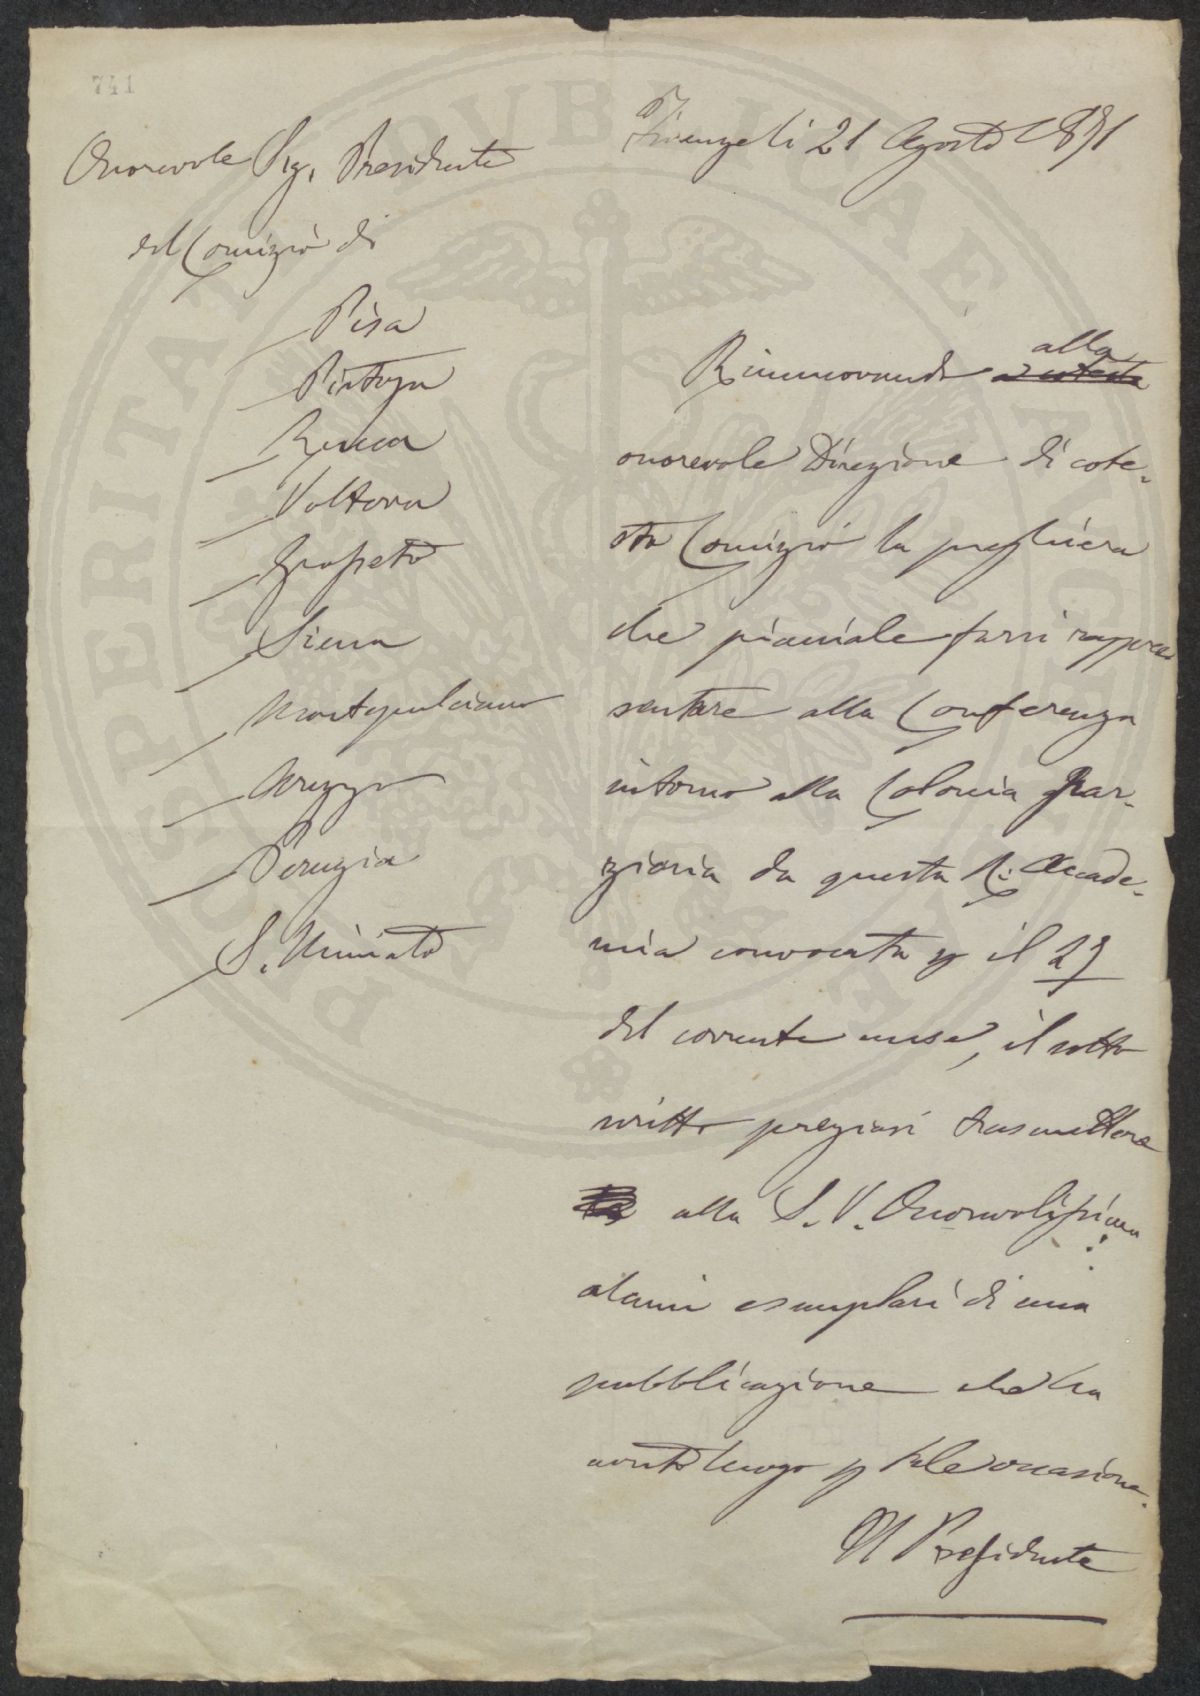 741
Firenze li 21 Agosto 1871
Onorevole Sig. Presidente
del Comizio di
Pisa
Pistoja
Lucca
Volterra
Grosseto
Siena
Montepulciano
Arezzo
Perugia
S. Miniato
Rinnuovando alla
onorevole Direzione di cote-
sto Comizio la preghiera
che piacciale farsi rappre
sentare alla Conferenza
intorno alla Colonia Par-
ziaria da questa R. Accade-
mia convocata p il 27
del corrente mese, il sotto
scritto pregiasi trasmettere
alla S. V. Onorevolissima
alcuni esemplari di una
pubblicazione che ha
avuto luogo p tale occasione.
Il Presidente
PROSPERITATI PUBLICAE AUGENDAE